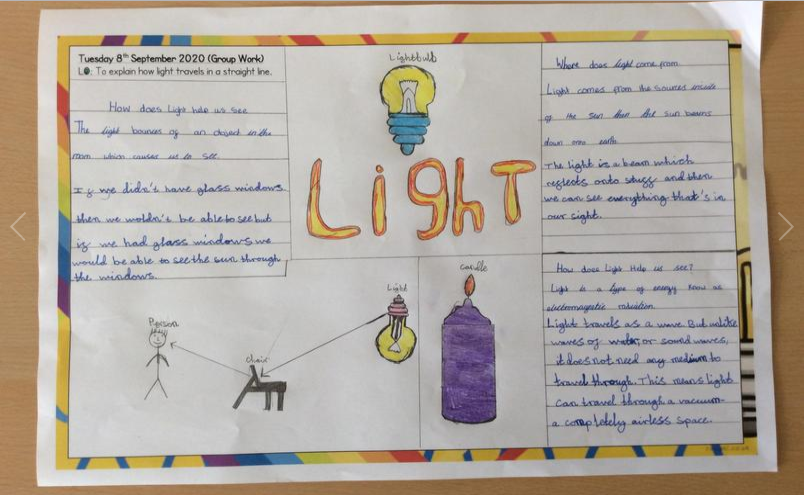 Tuesday 8th September 2020 (Group Work)
LO: To explain how light travels in a straight line.
How does Light help us see
The light bounces of an object in the
room which causes us to see
If we didn't have glass windows
then we wouldn't be able to see but
if we had glass windows we
would be able to see the sun through
the windows.
Lightbulb
LigHT
Where does light come from
Light comes from the sources inside
of the sun then the sun beams
down onto earth
The light is a beam which
reflects onto stuff and then
we can see everything that's in
our sight.
Person
Chair
Light
candle
How does Light Help us see?
Light is a type of energy know as
electromagnetic radiation.
Light travels as a wave. But unlike
waves of water, or sound waves,
it does not need any medium to
travel through. This means light
can travel through a vacuum-
a completely airless space.